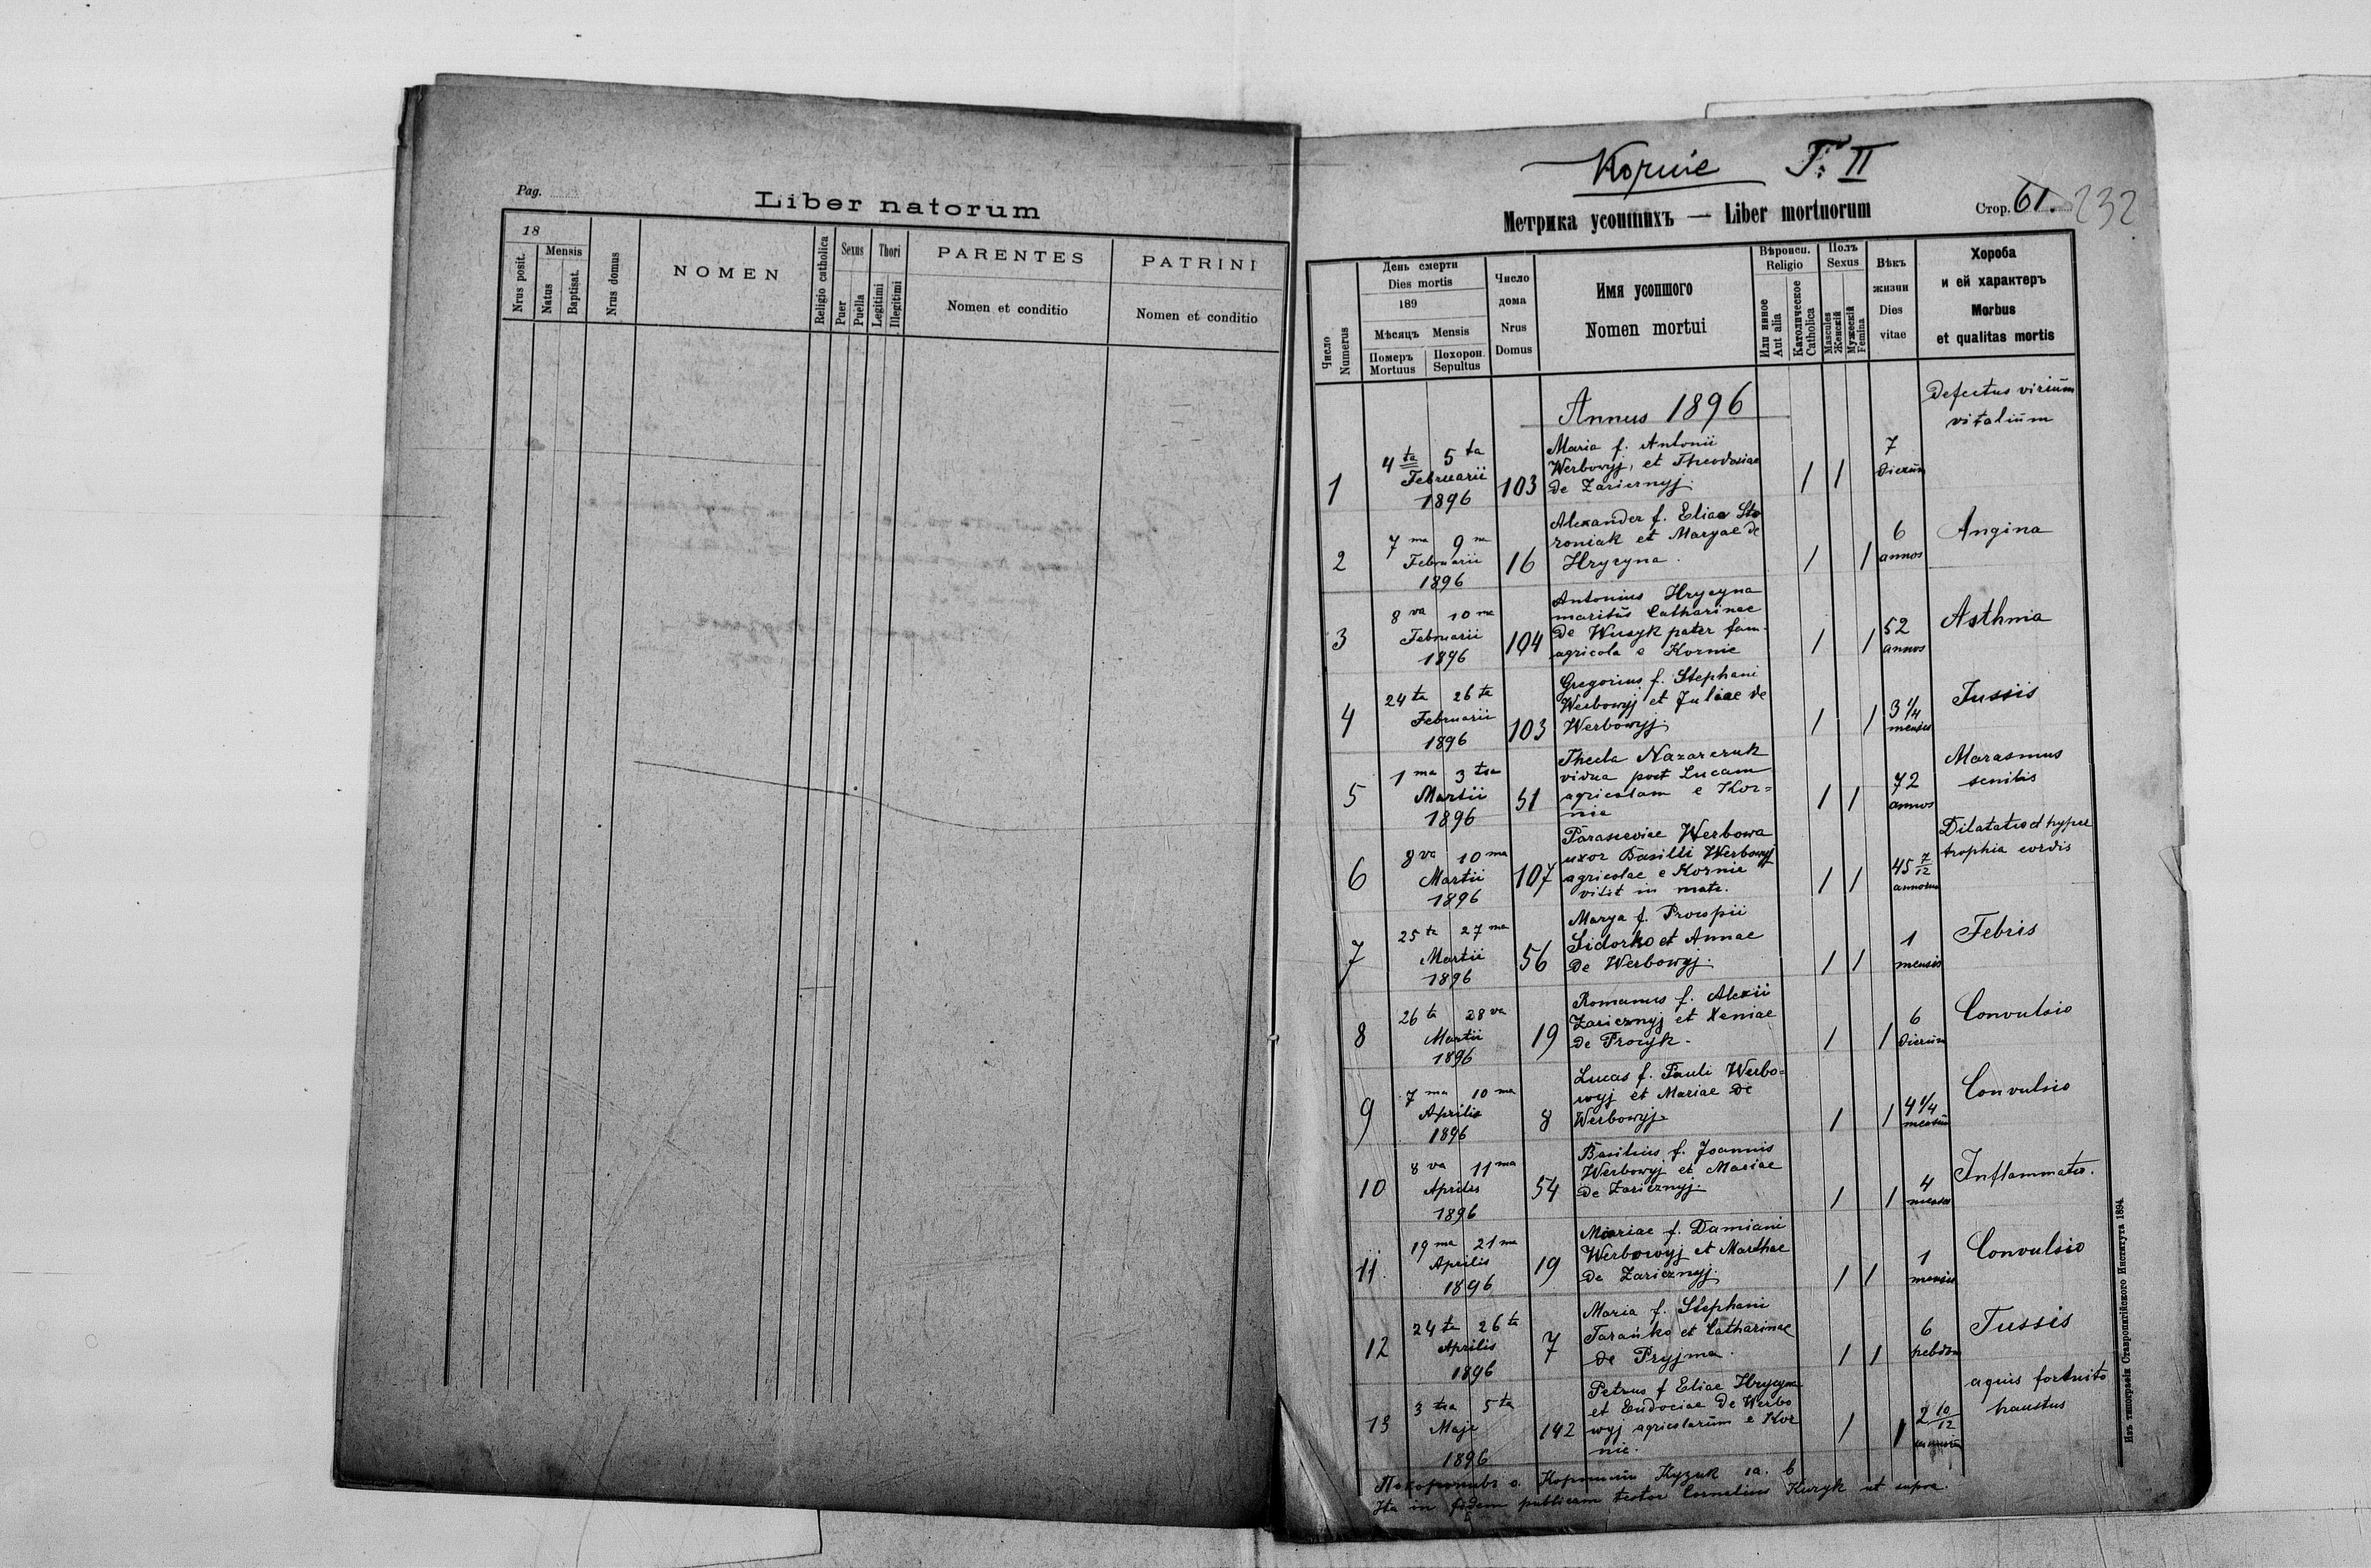 Pag.
Liber natorum
18
Nrus posit.
Mensis
Natus
Baptisat.
Nrus domus
NOMEN
Religio catholica
Sexus
Puer
Puella
Thori
Legitimi
Illegitimi
PARENTES
Nomen et conditio
PATRINI
Nomen et conditio
Kornie T. II
Стор. 61. 232
Метрика усопшихъ — Liber mortuorum
Число
Numerus
День смерти
Dies mortis
189
Мѣсяцъ Mensis
Померъ
Mortuus
Похорон.
Sepultus
Число
дома
Nrus
Domus
Имя усопшого
Nomen mortui
Вѣроисп.
Religio
Или инное
Aut alia
Католическое
Catholica
Полъ
Sexus
Mascules
Женскій
Мужескій
Femina
Вѣкъ
жизни
Dies
vitae
Хороба
и ей характеръ
Morbus
et qualitas mortis
Annus 1896
1
4ta 5ta
Februarii
1896
103
Maria f. Antonii
Werbowyj, et Theodosiae
de Zariernyj.
/ /
7
dierum
Defectus virium
vitalium
2
7ma 9na
Februarii
1896
16
Alexander f. Eliae Sto
roniak et Maryae de
Hrycyna.
/ /
6
annos
Angina
3
8va 10ma
Februarii
1896
104
Antonius Hrycyna
maritus Catharinae
de Wusyk pater fam.
agricola e Kornie
/ /
52
annos
Asthma
4
24ta 26ta
Februarii
1896
103
Gregorius f. Stephani
Werbowyj et Juliae de
Werbowyj.
/ /
3 1/4
menses
Tussis
5
1ma 3tia
Martii
1896
51
Thecla Nazarczuk
vidua post Lucam
agricolam e Kor=
nie
/ /
72
annos
Marasmus
senilis
6
8va 10ma
Martii
1896
107
Parasceviae Werbowa
uxor Basilli Werbowyj
agricolae e Kornie
vixit in matr.
/ /
45 7/12
annorum
Dilatatio et hyper
trophia cordis
7
25ta 27ma
Martii
1896
56
Marya f. Procopii
Sidorko et Annae
de Werbowyj.
/ /
1
mensis
Febris
8
26ta 28va
Martii
1896
19
Romanus f. Alexii
Zaricznyj et Xeniae
de Procyk.
/ /
6
dierum
Convulsio
9
7ma 10ma
Aprilis
1896
8
Lucas f. Pauli Werbo=
wyj et Mariae de
Werbowyj.
/ /
4 1/4
mensium
Convulsio
10
8va 11ma
Aprilis
1896
54
Basilius f. Joannis
Werbowyj et Mariae
de Zarieznyj.
/ /
4
menses
Inflammatio.
11.
19ma 21ma
Aprilis
1896
19
Mariae f. Damiani
Werbowyj et Marthae
de Zarieznyj.
/ /
1
mensis
Convulsio
12
24ta 26ta
Aprilis
1896
7
Maria f. Stephani
Tarańko et Catharinae
de Pryjma.
/ /
6
hebdom
Tussis
13
3tia 5ta
Maje
1896
142
Petrus f Eliae Hrycyna
et Eudociae de Werbo
wyj agricolarum e Kor
nie.
/ /
2 10/12
annorum
aquis fortuito
haustus
о. Kyzuk
Ita in fidem publicam testor Cornelius Kuzyk ut supra.
Изъ типографіи Ставропигійского Института 1894